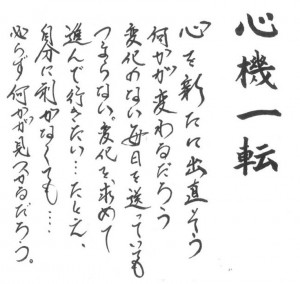 心機一転
心を新たに出直そう
何かが変わるだろう
変化のない毎日を送っていても
つまらない。変化を求めて
進んで行きたい…たとえ、
自分に利がなくても…
必らず何かが見つかるだろう。